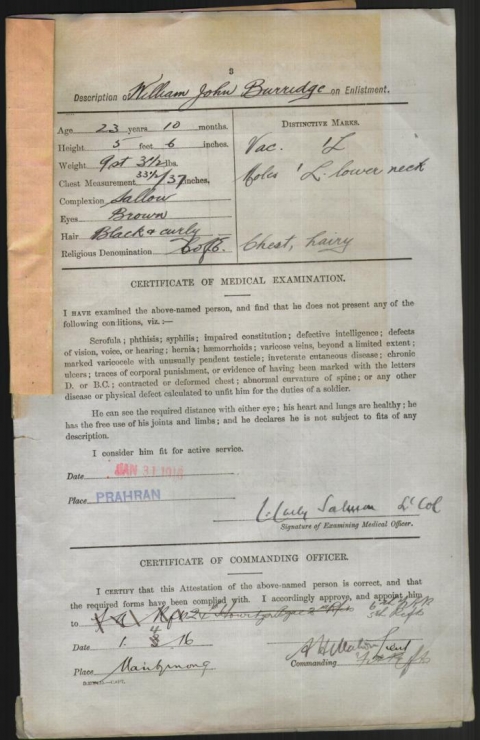 3
Description of William John Burridge on Enlistment.
Age 23 years 10 months.
Height 5 feet 6 inches.
Weight 9st 3½ lbs.
Chest Measurement 33½/37 inches.
Complexion Sallow
Eyes Brown
Hair Black & curly
Religious Denomination C of E.
DISTINCTIVE MARKS.
Vac. 1 L
Moles 1 L. lower neck
Chest, hairy
CERTIFICATE OF MEDICAL EXAMINATION.
I HAVE examined the above-named person, and find that he does not present any of the
following conditions, viz. :—
Scrofula; phthisis; syphilis; impaired constitution; defective intelligence; defects
of vision, voice, or hearing; hernia; hæmorrhoids; varicose veins, beyond a limited extent;
marked varicocele with unusually pendent testicle; inveterate cutaneous disease; chronic
ulcers; traces of corporal punishment, or evidence of having been marked with the letters
D. or B.C.; contracted or deformed chest; abnormal curvature of spine; or any other
disease or physical defect calculated to unfit him for the duties of a soldier.
He can see the required distance with either eye; his heart and lungs are healthy; he
has the free use of his joints and limbs; and he declares he is not subject to fits of any
description.
I consider him fit for active service.
Date JAN 31
Place PRAHRAN
Salmon Lt Col
Signature of Examining Medical Officer.
CERTIFICATE OF COMMANDING OFFICER.
I CERTIFY that this Attestation of the above-named person is correct, and that
the required forms have been complied with. I accordingly approve, and appoint him
to
Date 1 4 16
Place Maribyrnong
Lieut
Commanding